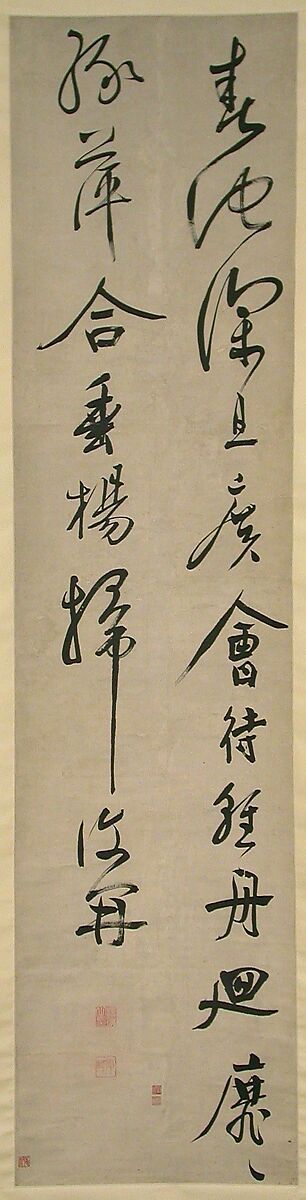 春池深且廣會待輕舟迴靡〻
綠萍合垂楊掃復開